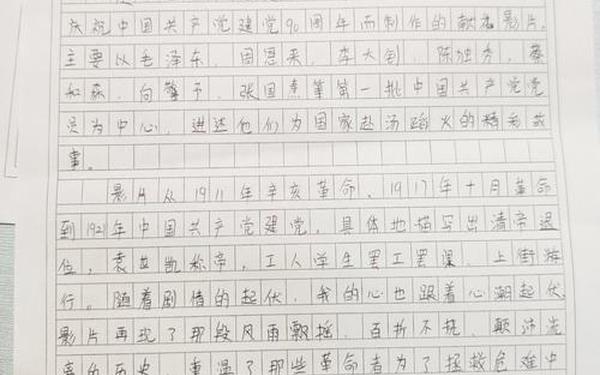 庆祝中国共产党建党90周年而制作的献礼影片,
主要以毛泽东、周恩来、李大钊、陈独秀、蔡
和森、向警予、张国焘等第一批中国共产党党
员为中心,讲述他们为国家赴汤蹈火的精彩故
事。
影片从1911年辛亥革命、1917年十月革命
到1921年中国共产党建党,具体地描写出清帝退
位,袁世凯称帝,工人学生罢工罢课、上街游
行。随着剧情的起伏,我的心也跟着心潮起伏,
影片再现了那段风雨飘摇、百折不挠、颠沛流
离的历史,重温了那些革命者为了拯救危难中